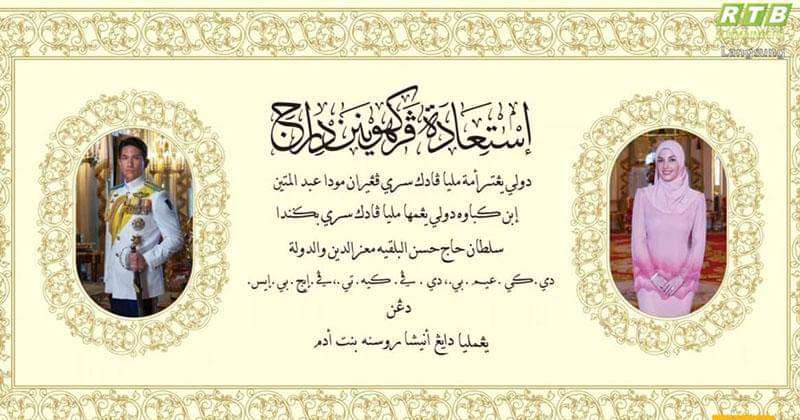 RTB
Langsung
إستعادة ڤركهوينن دراج
دولي يڠ تر أمة مليا ڤادك سري ڤڠيران مودا عبد المتين
إبن كباوه دولي يڠمها مليا ڤادك سري بڬندا
سلطان حاج حسن البلقيه معز الدين والدولة
دي.كي. عيم. بي.، دي. ڤي. كيه. تي.، ڤي.إيچ. بي. إيس.
دڠن
يڠمليا دايڠ أنيشا روسنه بنت أدم